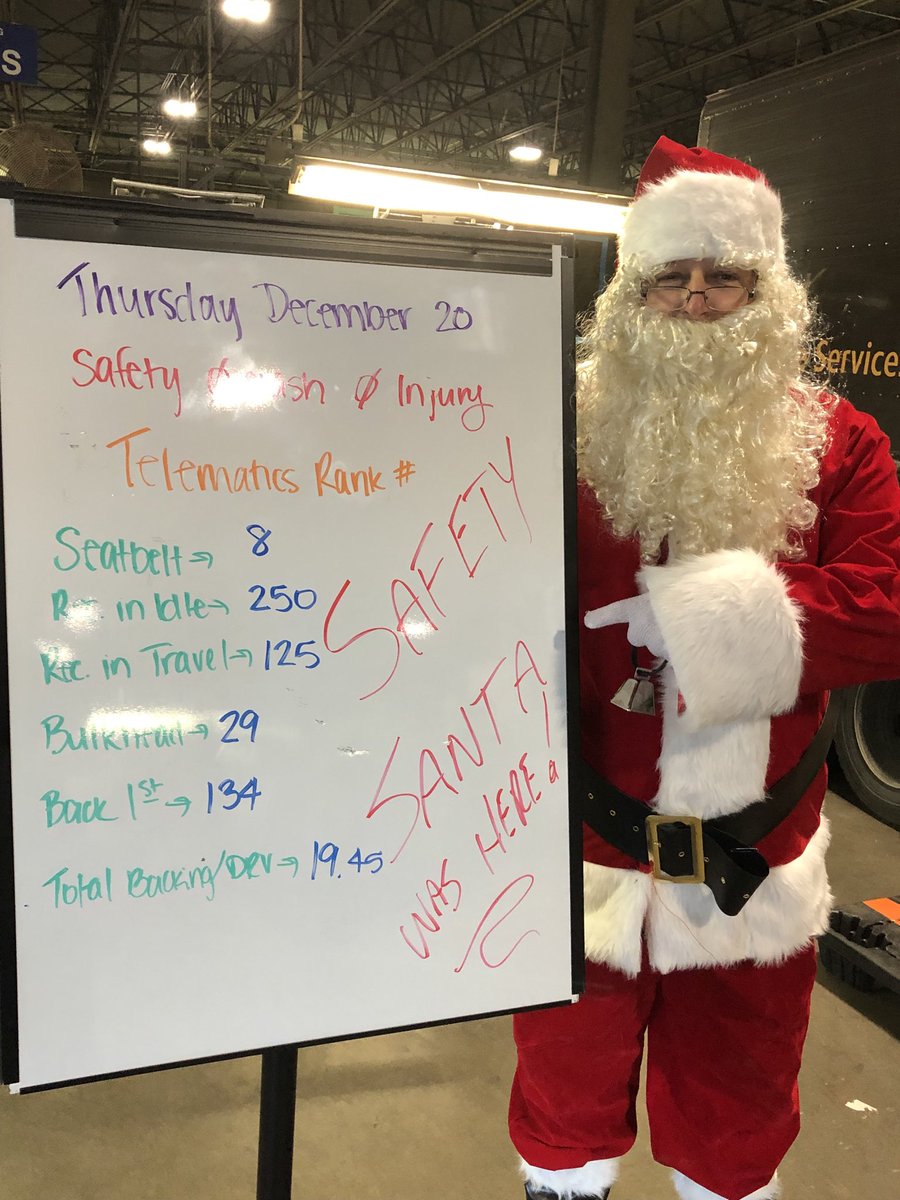 S
Thursday December 20
Safety Ø Ø Injury
Telematics Rank #
Seatbelt → 8
in Idle → 250
Rec. in Travel → 125
Bulkhead → 29
Back 1st → 134
Total Backing/DRV → 19.45
SAFETY
SANTA
WAS HERE!
Services